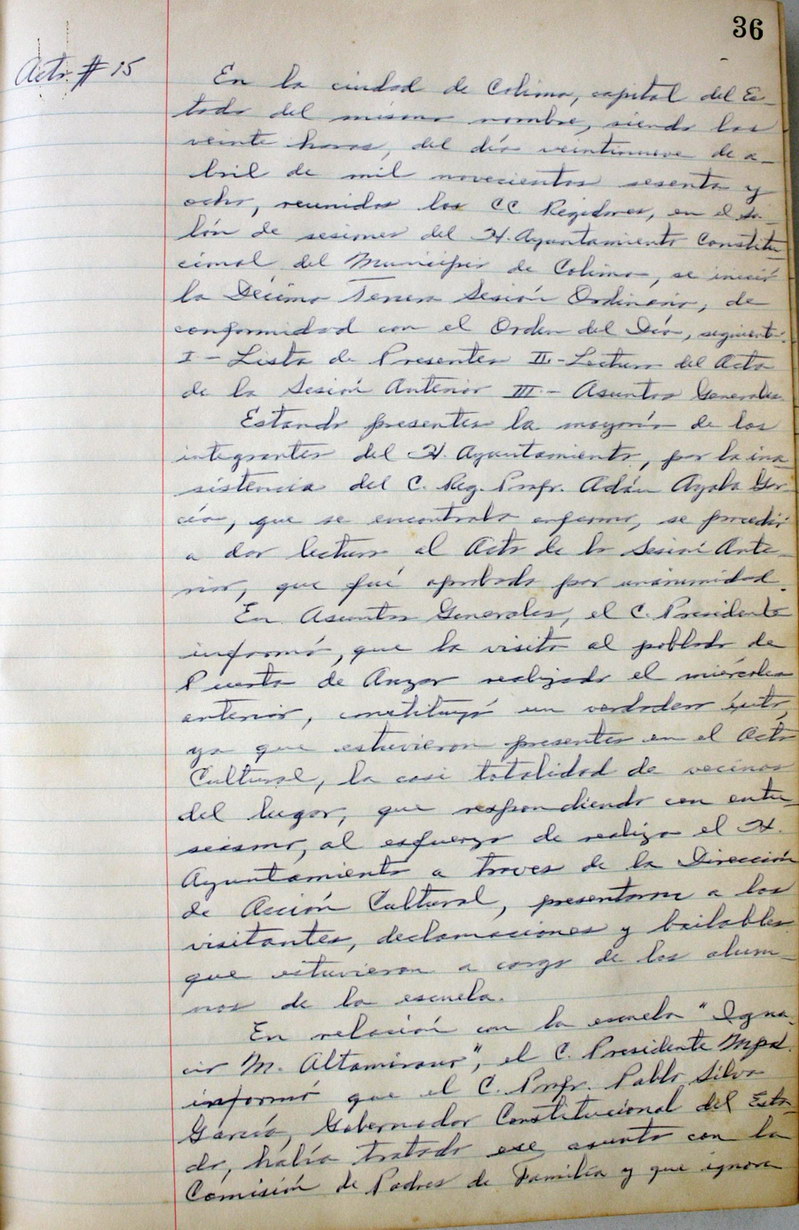 36
Acta # 15
En la ciudad de Colima, capital del Es-
tado del mismo nombre, siendo las
veinte horas, del día veintinueve de a-
bril de mil novecientos sesenta y
ocho, reunidos los CC Regidores, en el Sa-
lón de sesiones del H. Ayuntamiento Constitu-
cional del Municipio de Colima, se inició
la Décima Tercera Sesión Ordinaria, de
conformidad con el Orden del Día, siguiente:
I - Lista de Presentes II - Lectura del Acta
de la Sesión Anterior III - Asuntos Generales.
Estando presentes la mayoría de los
integrantes del H. Ayuntamiento, por la ina-
sistencia del C. Reg. Profr. Adán Ayala Gar-
cía, que se encontraba enfermo, se procedió
a dar lectura al Acta de la Sesión Ante-
rior, que fué aprobada por unanimidad.
En Asuntos Generales, el C. Presidente
informó, que la visita al poblado de
Puerta de Anzar realizada el miércoles
anterior, constituyó un verdadero éxito,
ya que estuvieron presentes en el Acto
Cultural, la casi totalidad de vecinos
del lugar, que respondiendo con entu-
siasmo, al esfuerzo de realiza el H.
Ayuntamiento a traves de la Dirección
de Acción Cultural, presentaron a los
visitantes, declamaciones y bailables
que estuvieron a cargo de los alum-
nos de la escuela.
En relación con la escuela "Igna-
cio M. Altamirano", el C. Presidente Mpal.
informó que el C. Profr. Pablo Silva
García, Gobernador Constitucional del Esta-
do, había tratado ese asunto con la
Comisión de Padres de Familia y que ignora